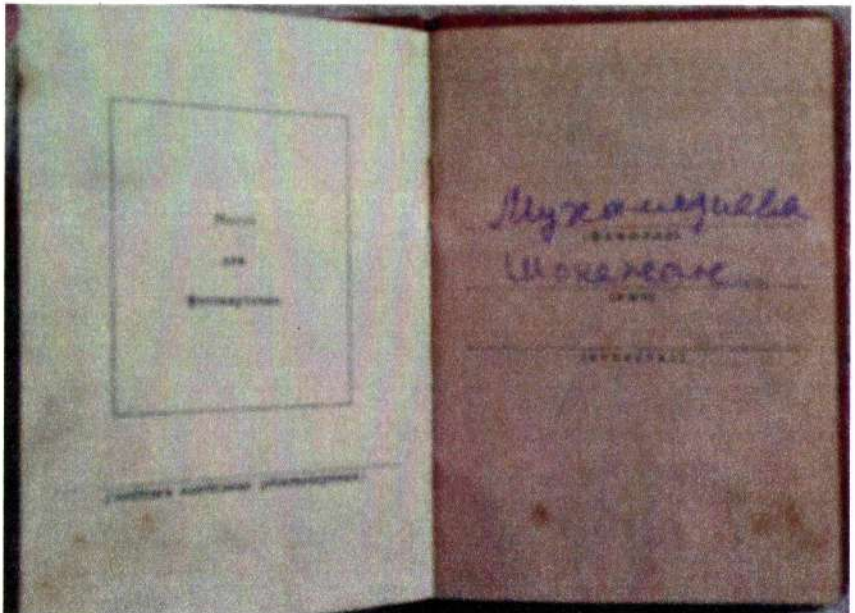 Место
для
фотокарточки
Мухамядиева
(фамилия)
Шокежан
(имя)
(отчество)